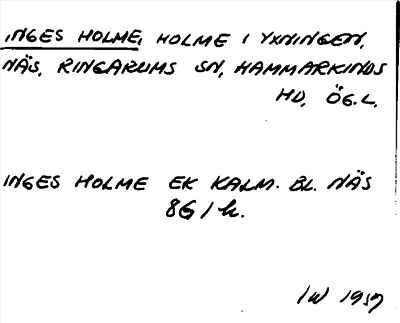 INGES HOLME, HOLME I YXNINGEN,
NÄS, RINGARUMS SN, HAMMARKINDS
HD, ÖG.L.
INGES HOLME EK KALM. BL. NÄS
861 h.
IW 1937